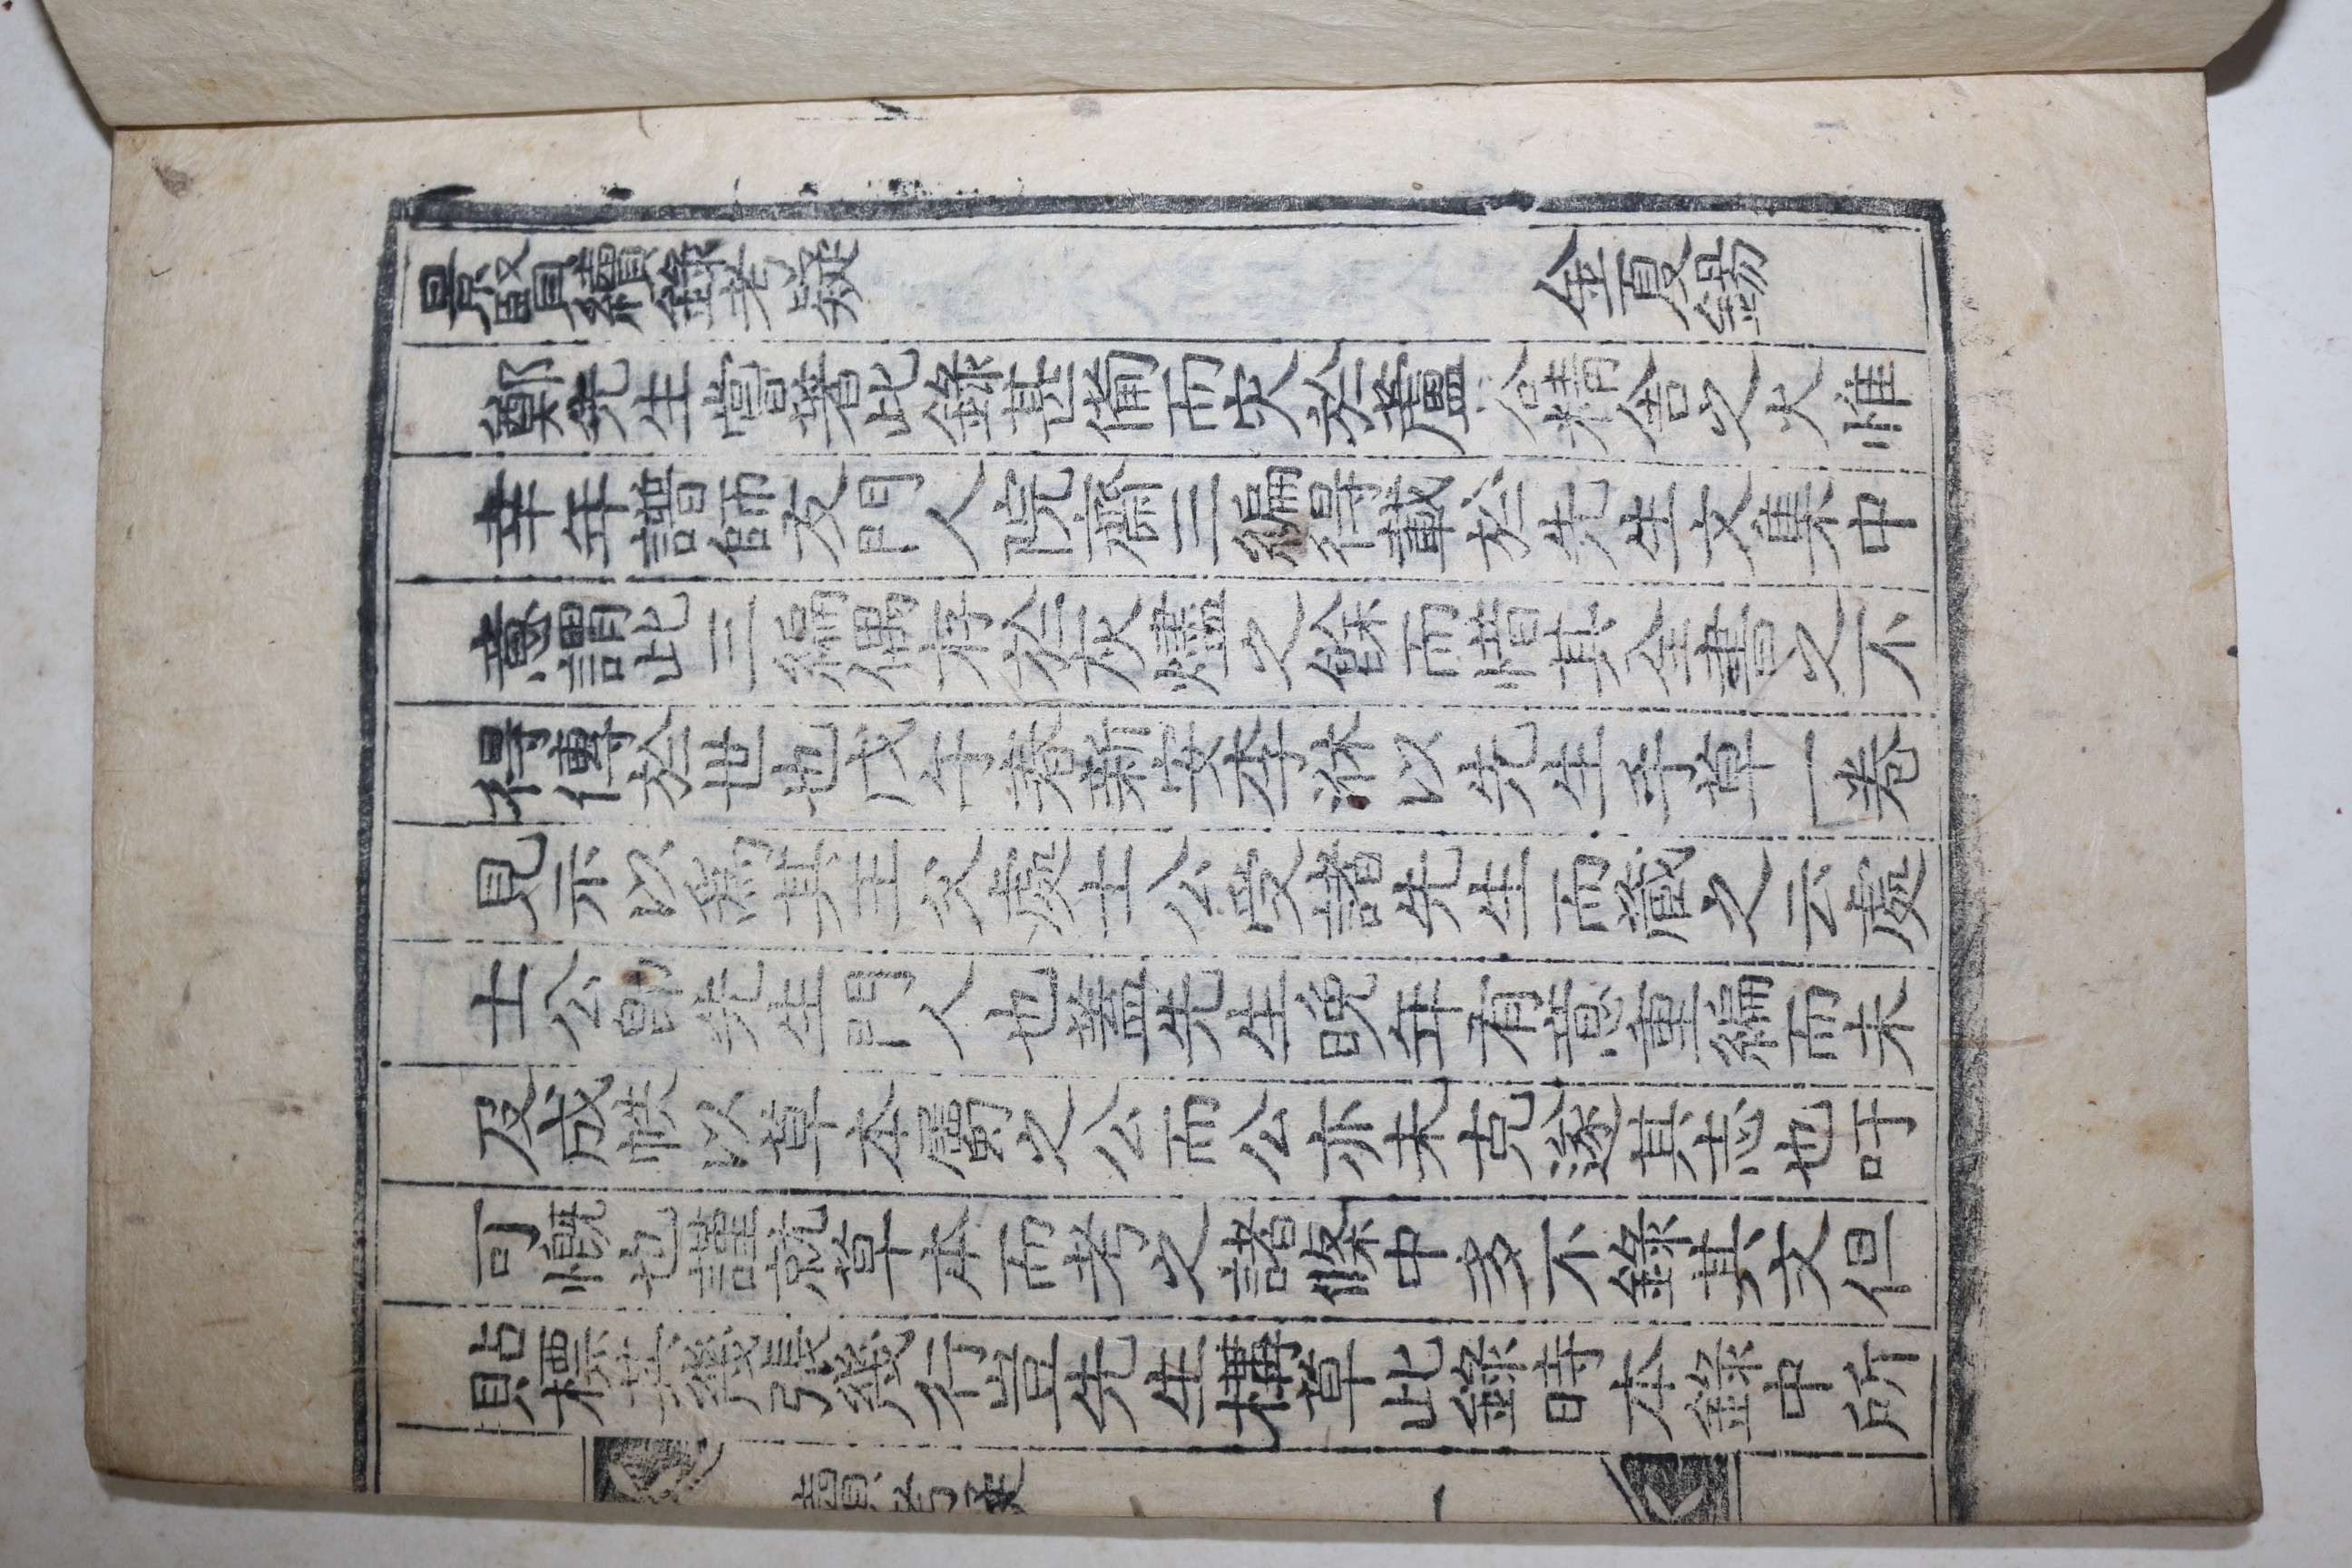 景賢續錄考疑 金夏錫
鄭先生嘗著此錄甚備而灾於蘆谷精舍之火惟
幸年譜師友門人院齋三編得載於先生文集中
意謂此三編偶存於灰燼之餘而惜其全書之不
得傳於世也戊午春新安李淋以先生手草一卷
見示以爲其王父處士公受諸先生而藏之云處
士公卽先生門人也蓋先生晩年有意重編而未
及成帙以草本屬之公而公亦未克遂其志也吁
可慨也謹就草本而考之諸條中多不錄其文但
貼標其幾張幾行豈先生構草此錄時本錄中所
續考疑 一